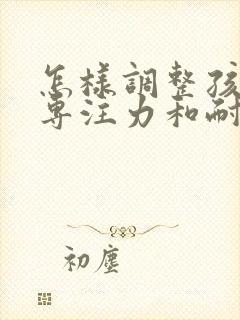 怎樣調整孩
專注力和耐
初塵